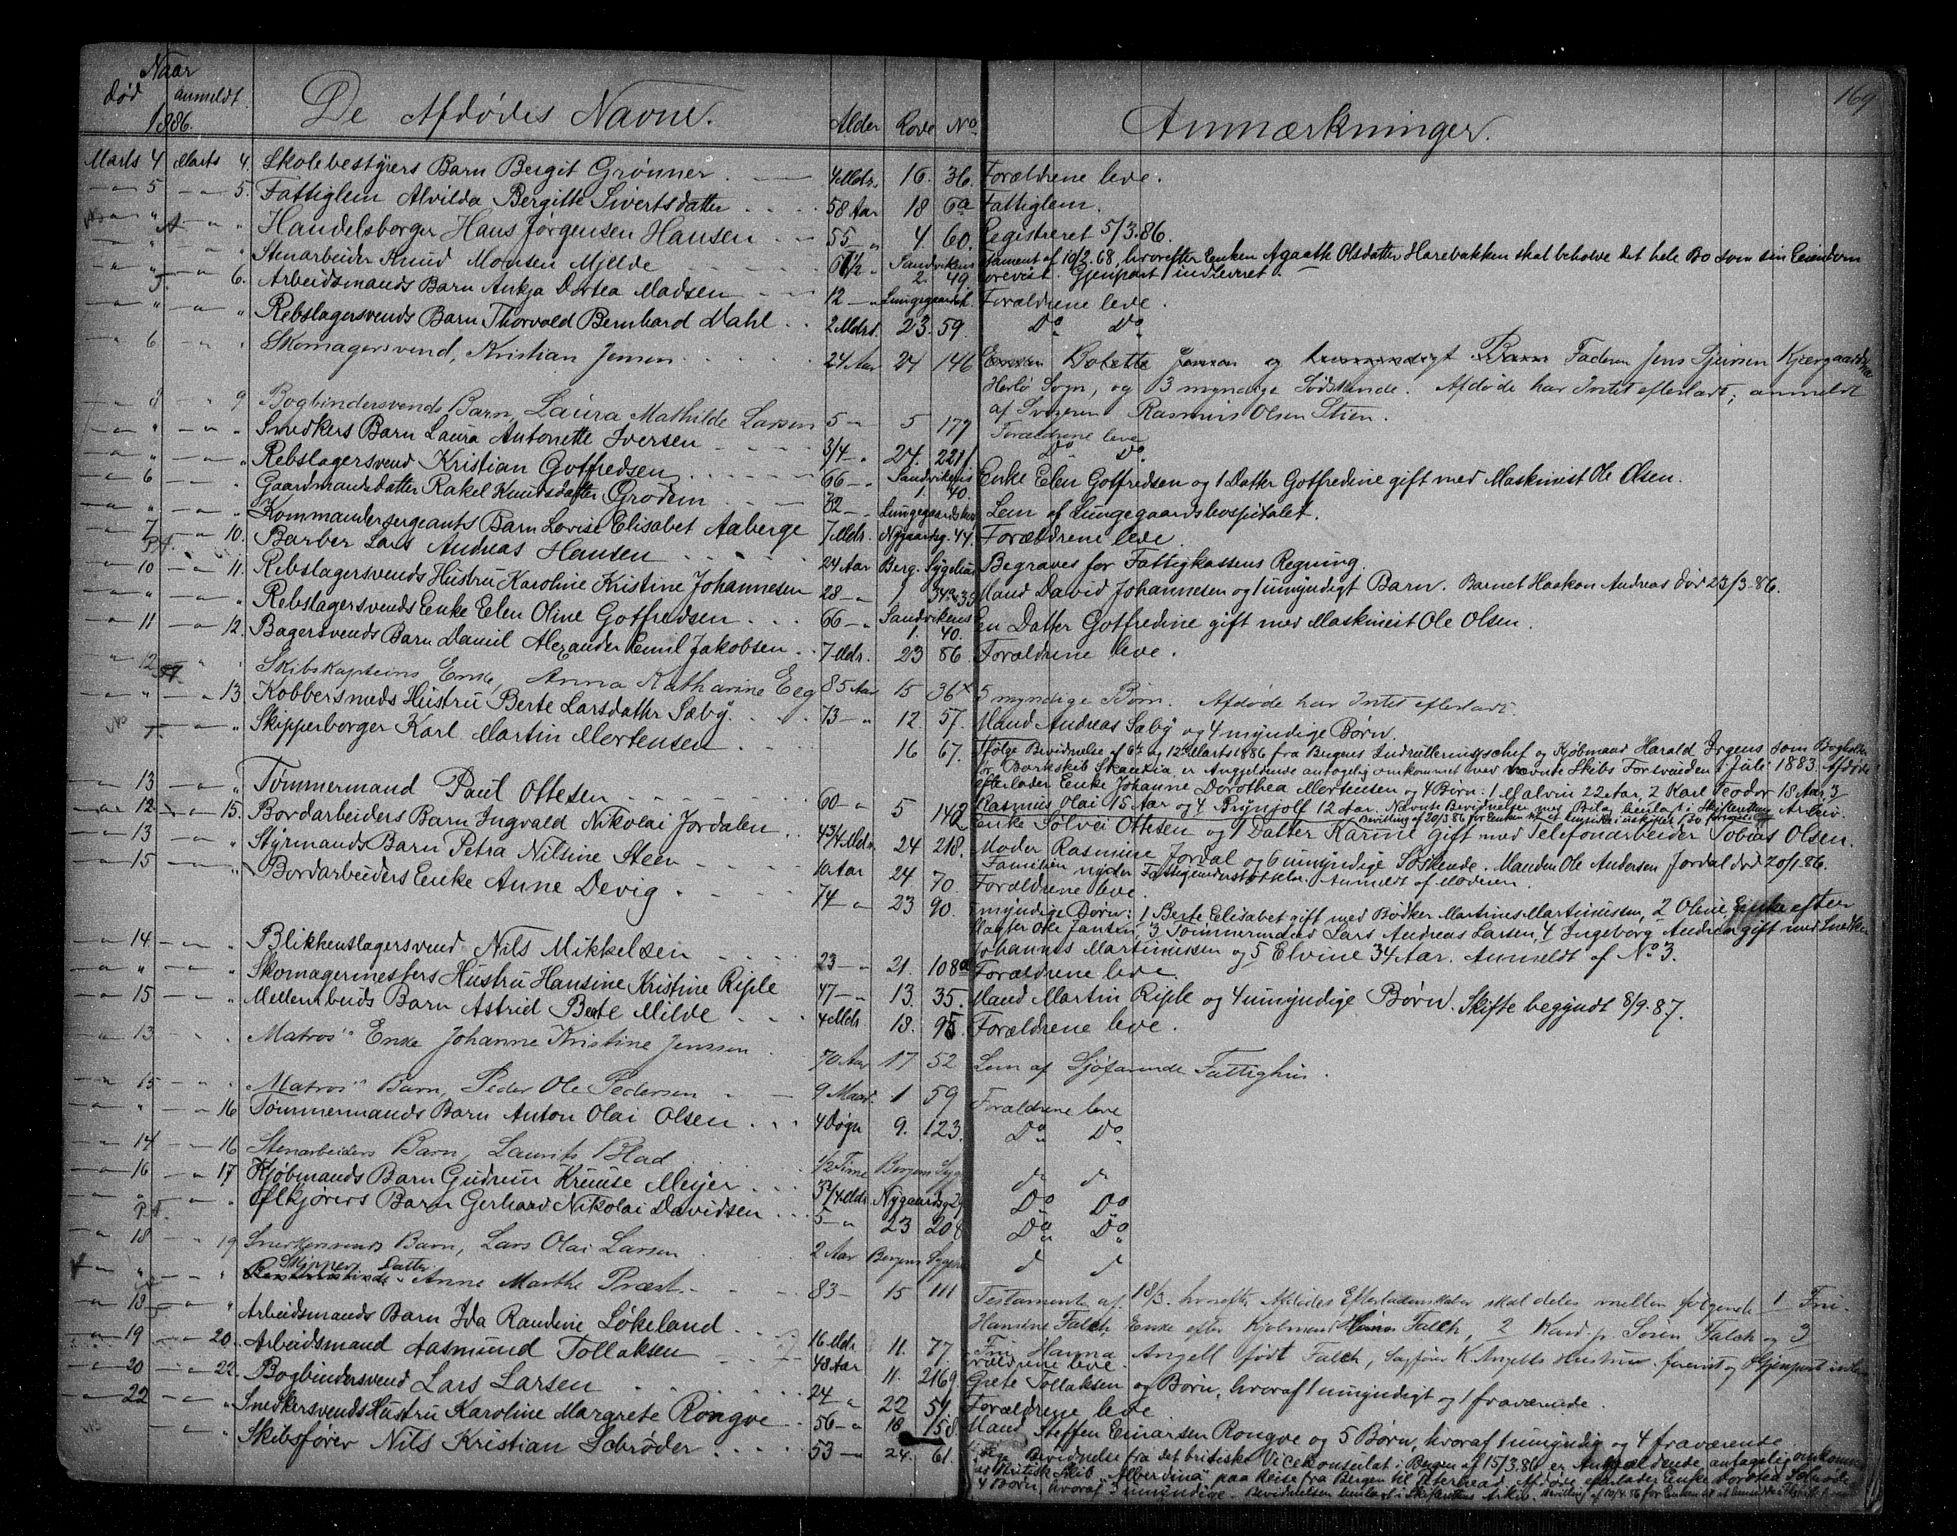 169
Naar
død anmeldt
1886.
De Afdødes Navne. Alder Rode No Anmærkninger.
Marts 4 Marts 4. Skolebestyrers Barn Bergit Grønner. 4 Mdr. 16. 36. Forældrene leve.
— " — 5 — " — 5. Fattiglem Alvilda Bergitte Sivertsdatter 58 Aar 18 6a Fattiglem.
Handelsborger Hans Jørgensen Hansen 55 — " 4. 60. Registreret 5/3.86.
Stenarbeider Knud Monsen Mjelde 61½ " Sandvikens 2. 49. Testament af 10/2.68, hvorefter Enken Agaathe Olsdatter Harebakken skal beholde det hele Bo som sin Eiendom
forevist. Gjenpart indleveret.
6. Arbeidsmands Barn Ankja Dortea Madsen 12 — " Lungegaardsh. Forældrene leve.
Rebslagersvends Barn Thorvald Bernhard Mahl 2 Mdr. 23. 59. Do Do
6 Skomagersvend, Kristian Jensen 24 Aar 24 146 Bolette og Faderen Jens Kjærgaard
Herlø Sogn, og 3 myndige Sødskende. Afdøde har Intet efterladt; anmeldt
af Svogeren Rasmus Olsen Stien.
8 9. Bogbindersvends Barn, Laura Mathilde Larsen 5 — " 5 177 Forældrene leve
Snedkers Barn Laura Antonette Iversen 3/4 — " 24. 221 Do Do
Rebslagersvend Kristian Gotfredsen 66 — " Sandvikens 1. 40. Enke Elen Gotfredsen og 1 Datter Gotfredine gift med Maskinist Ole Olsen.
6 Gaardmandsdatter Rakel Knudsdatter Grodem 72 — " Lungegaardshosp. Lem af Lungegaardshospitalet.
Kommandersergeants Barn Lovise Elisabet Aaberge 7 Mdr. Nygaardsg. 44 Forældrene leve.
7 10. Barber Lars Andreas Hansen 24 Aar Berg. Sygehus Begraves for Fattigkassens Regning.
10 11. Rebslagersvends Hustru Karoline Kristine Johannesen 28 — " 1 Mand David Johannesen og 1 umyndigt Barn. Barnet Haakon Andreas død 23/3.86.
Rebslagersvends Enke Elen Oline Gotfredsen 66 — " Sandvikens 1. 40. En Datter Gotfredine gift med Maskinist Ole Olsen.
11 12. Bagersvends Barn Daniel Alexander Emil Jakobsen 7 Mdr. 23 86 Forældrene leve.
12 Skibskapteins Enke, Anna Katharine Eeg 85 Aar 15 36 5 myndige Børn. Afdøde har Intet efterladt.
13 Kobbersmeds Hustru Berte Larsdatter Sæby 73 — " 12 57. Mand Andreas Sæby og 4 myndige Børn.
Skipperborger Karl Martin Mortensen 16 67. Ifølge Bevidnelse af 6te og 12te Marts 1886 fra Bergens Indrulleringschef og Kjøbmand Harald Irgens som Bogholder
for Barkskib Skandia er Angjeldende antagelig omkommet med nævnte Skibs Forlis siden i Juli 1883. Afdøde
efterlader Enke Johanne Dorothea Mortensen og 4 Børn: 1 Malvin 22 Aar, 2 Karl Teodor 18 Aar, 3
Rasmus Olai 15 Aar og 4 Brynjolf 12 Aar. Nævnte Bevidnelser med Bilag henlagt i Skifterettens Arkiv.
13 Tømmermand Paul Ottesen 60 — " 5 142 Enke Sølvei Ottesen og 1 Datter Karine gift med Telefonarbeider Tobias Olsen.
12 15. Bordarbeiders Barn Ingvald Nikolai Jordalen 4¾ Mdr. 24 218. Moder Rasmine Jordal og 6 umyndige Søskende. Manden Ole Andersen Jordal død 20/1.86.
Familien nyder Fattigunderstøttelse. Anmeldt af Moderen.
13 Styrmands Barn Petra Nilsine Steen 10 Aar 24 70. Forældrene leve.
15 Bordarbeiders Enke Anne Devig 74 — " 23 90. myndige Børn: 1 Berte Elisabet gift med Bødker Martines Martinussen, 2 Oline Enke efter
Ole Jansen, 3 Tømmermand Lars Andreas Larsen, 4 Ingeborg Andrea gift med Snedker
Johannes Martinussen og 5 Elvine 34 Aar. Anmeldt af No 3.
14 Blikkenslagersvend Nils Mikkelsen 23 — " 21. 108a Forældrene leve
Skomagermesters Hustru Hansine Kristine Riple 47 — " 13. 35. Mand Martin Riple og 4 umyndige Børn. Skifte begyndt 8/9.87.
15 Barn Astrid Berte Milde 4 Mdr 18. 95. Forældrene leve.
13 Matros' Enke Johanne Kristine Jenssen 70 Aar 17 52 Lem af Sjøfarende Fattighus.
15 Matros' Barn, Peder Ole Pedersen 9 Maan. 1 59 Forældrene leve
16 Tømmermands Barn Anton Olai Olsen 4 Døgn 9. 123. Do Do
14 16 Stenarbeiders Barn, Laurits Blad ½ Time Bergens Syge
16 17 Kjøbmands Barn Gudrun Kruuse Meyer 3¾ Mdr. Nygaardsg 29 Do Do
Ølkjørers Barn Gerhard Nikolai Davidsen 5 — " 23 208 Do Do
18 19 Snedkersvends Barn, Lars Olai Larsen 2 Aar Bergens Syge
Skipper Datter
Anne Marthe Præst 83 — 15 111 Testament af 18/3. hvorefter Afdødes Efterladenskaber skal deles mellem følgende 1 Fru
Hansine Falch, Enke efter Kjøbmand Falch, 2 Kand. p. Søren Falch og 3
Fru Hanna Angell født Falch, Sagfører K. Angells Hustru. forevist og Gjenpart indlev.
18 Arbeidsmands Barn Ida Randine Løkeland 16 Mdr 11. 77 Forældrene leve.
19 20. Arbeidsmand Aasmund Tollaksen 48 Aar 11. 216 Grete Tollaksen og Børn, hvoraf 1 umyndigt og 1 fraværende.
20 22. Bogbindersvend Lars Larsen 24 — " 22 51. Forældrene leve
22 Snedkersvends Hustru Karoline Margrete Rongve 56 — " 18 158. Mand Steffen Einarsen Rongve og 5 Børn, hvoraf 1 umyndig og 4 fraværende
Skibsfører Nils Kristian Schrøder 53 — " 24. 61. Bevidnelse fra det britiske Vicekonsulat i Bergen af 15/3.86 er Anmeldende antagelig omkommet
Britisk Skib "Alberdina" paa Reise fra Bergen til Peterhead. Afdøde efterlader Enke Dorotea Schrøder
4 Børn, hvoraf 3 umyndige. Bevidnelsen henlagt i Skifterettens Arkiv.